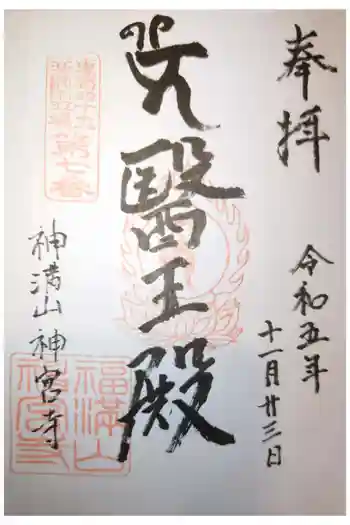 奉拝
令和五年
十一月廿三日
醫王殿
第七番
神満山神宮寺
福満山
神宮寺